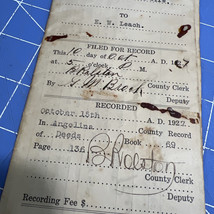 TO
H. H. Leach.
FILED FOR RECORD
This 10 day of Oct A. D. 19
at 5 o'clock M.
B. Ralston
County Clerk
By Deputy
RECORDED
October 15th A. D. 1922.
In Angelina County
Deeds Book 69
Page 136
B. Ralston
County Clerk
Deputy
Recording Fee $